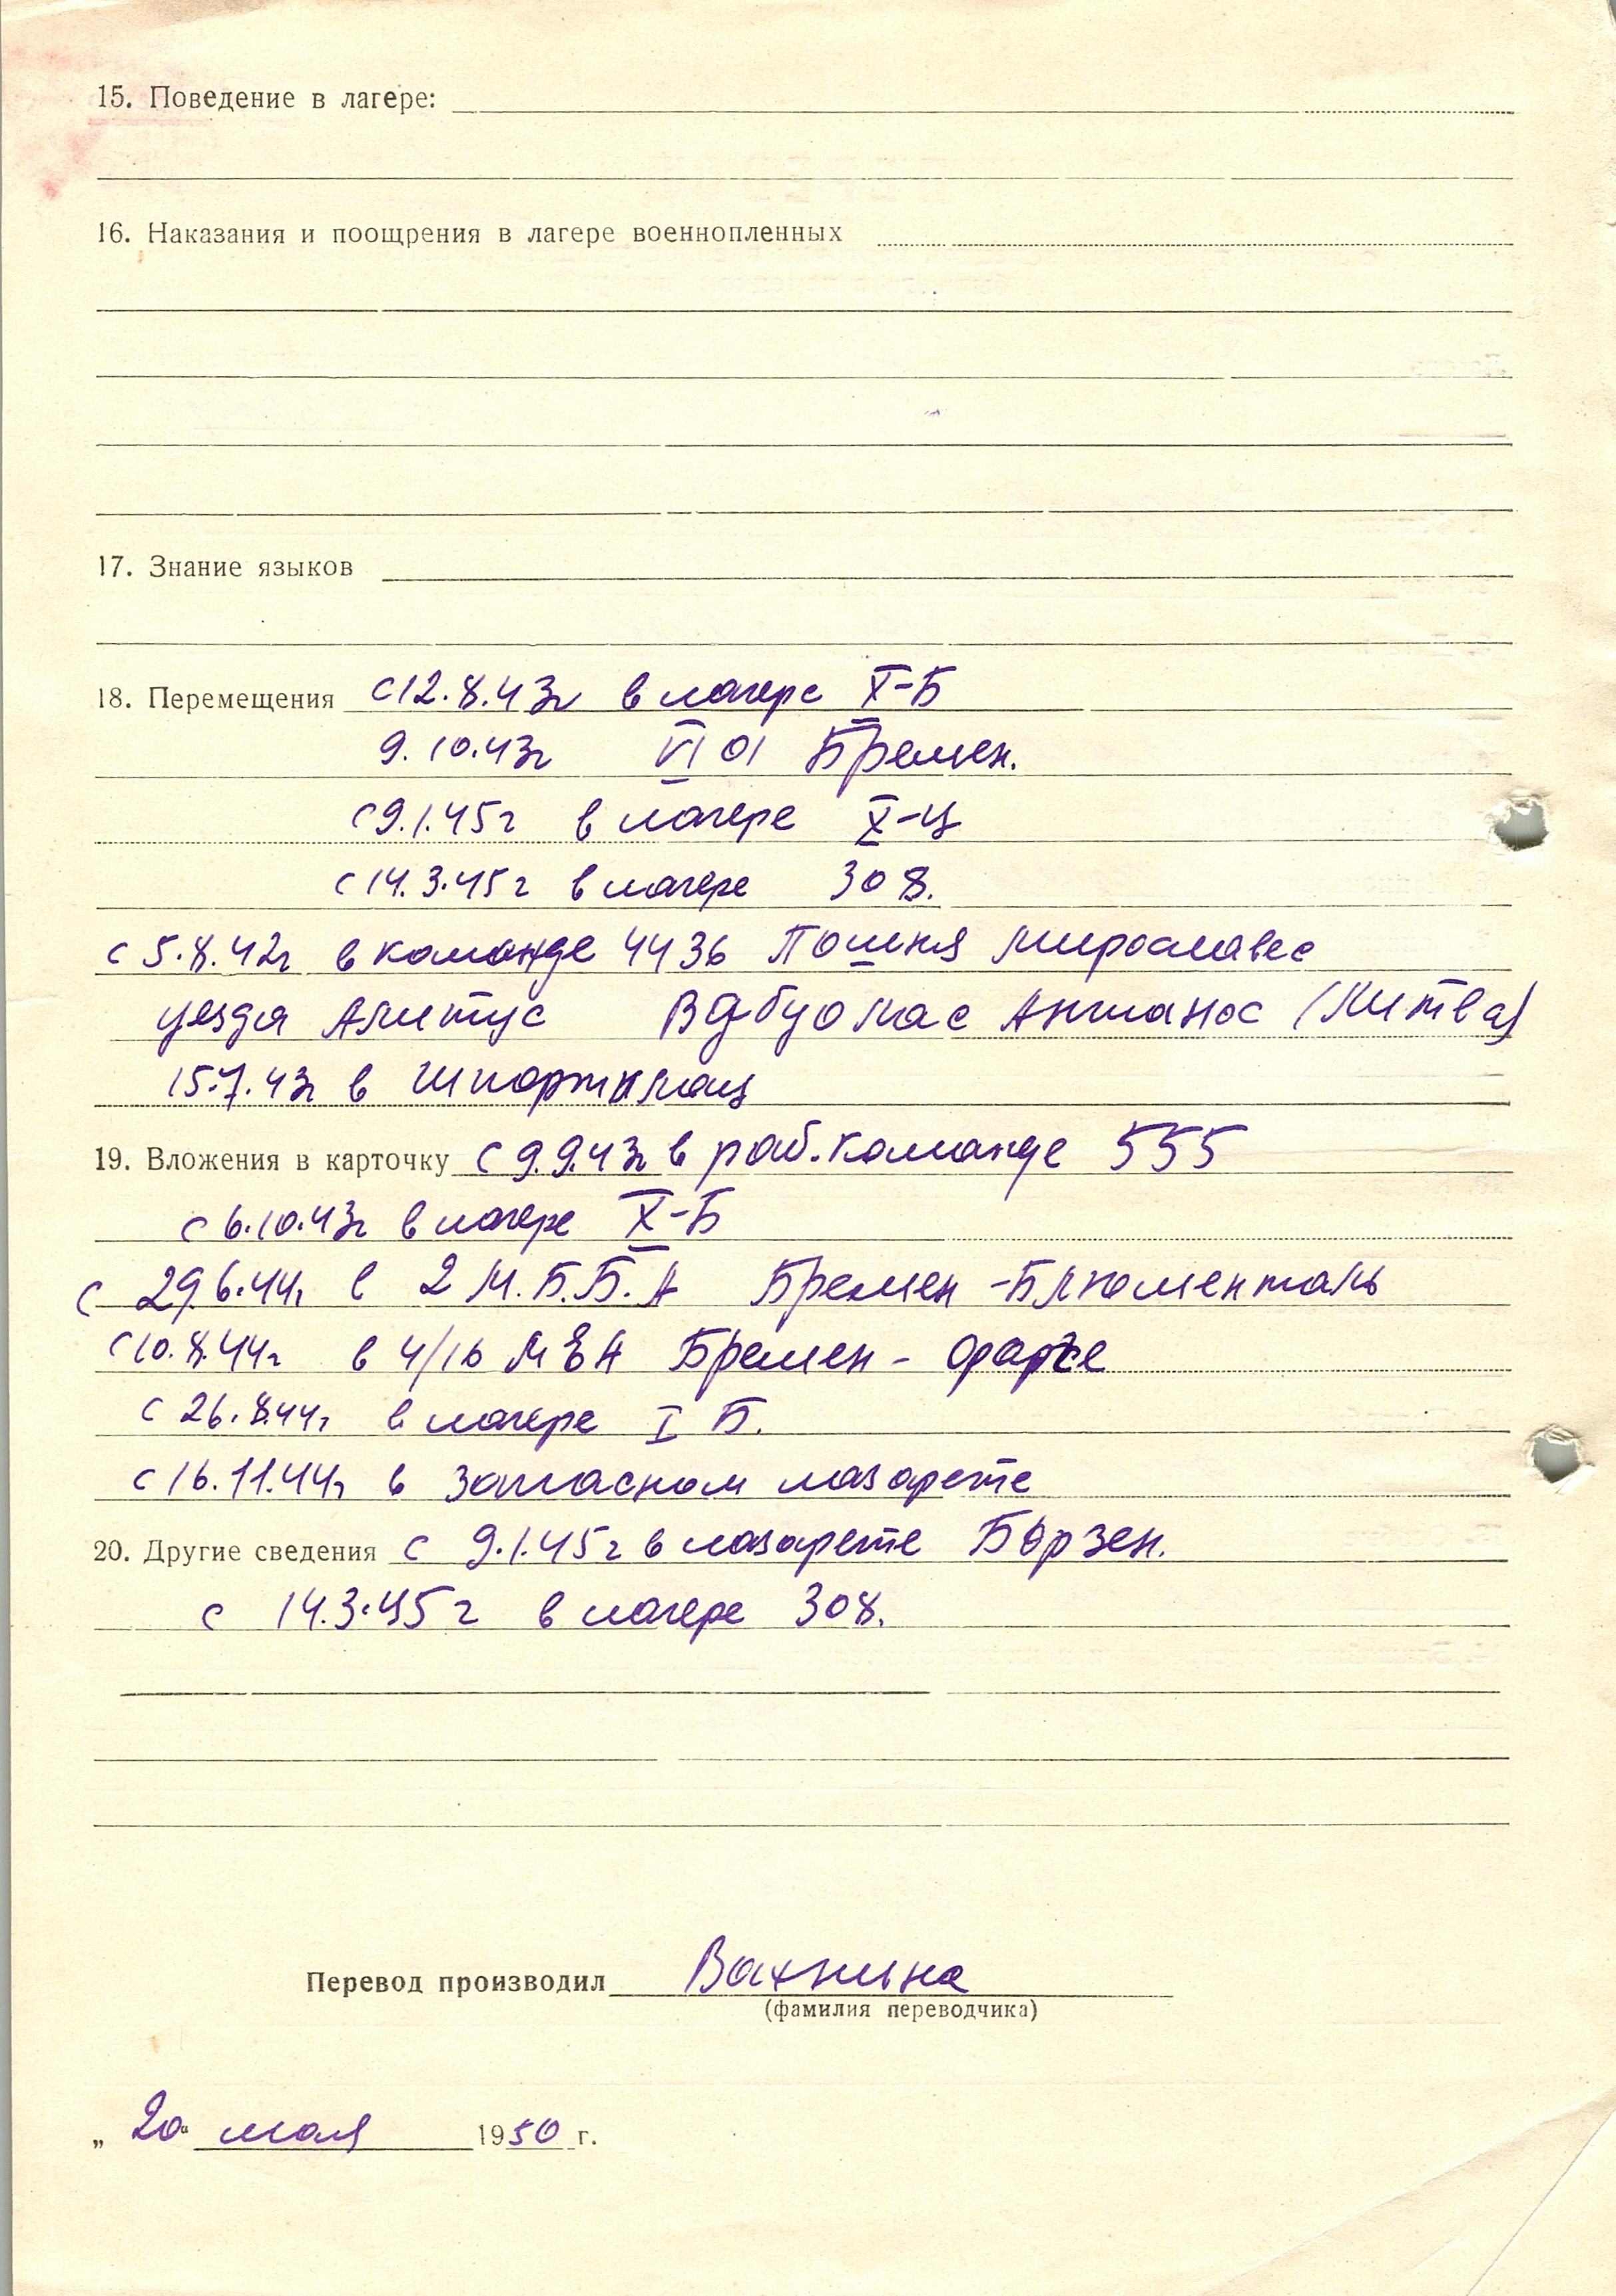 15. Поведение в лагере:
16. Наказания и поощрения в лагере военнопленных
17. Знание языков
18. Перемещения с 12.8.43г в лагере X-Б
9.10.43г VI 01 Бремен.
с 9.1.45г в лагере X-Ц
с 14.3.45г в лагере 308.
с 5.8.42г в команде 4436 Пошня Мирославес
уезда Алитус (Литва)
15.7.43г в Шпортплац
19. Вложения в карточку с 9.9.43г в раб. команде 555
с 6.10.43г в лагере X-Б
с 29.6.44г в 2 М.Б.Б.А Бремен-Блюменталь
с 10.8.44г в 4/16 Бремен - Фарге
с 26.8.44г в лагере I Б.
с 16.11.44г в запасном лазарете
20. Другие сведения с 9.1.45г в лазарете Бэрзен.
с 14.3.45г в лагере 308.
Перевод производил Вахнина
(фамилия переводчика)
„ 20 “ мая 1950 г.